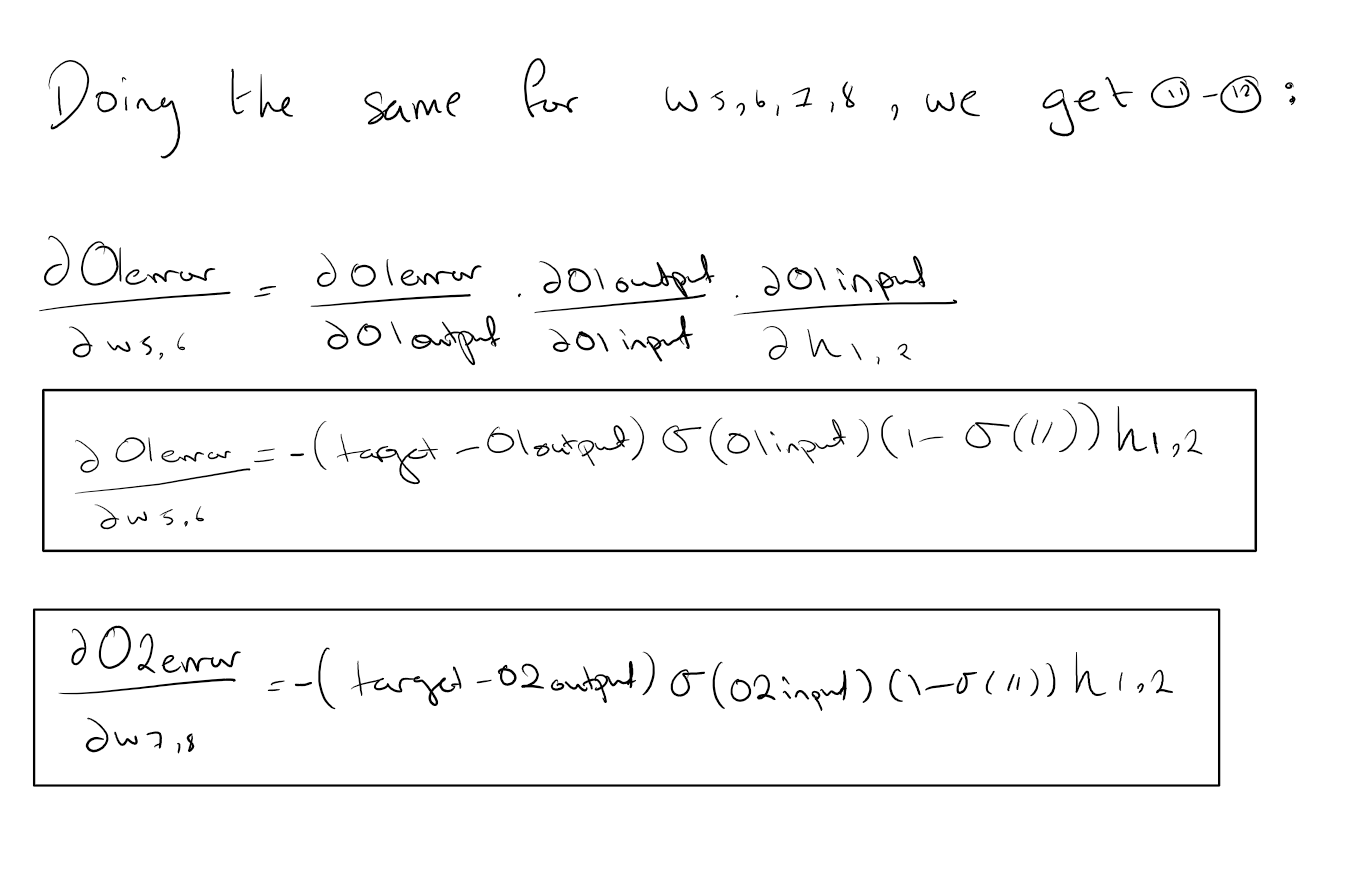 Doing the same for w5,6,7,8, we get ⑪-⑫:
∂O1error/∂w5,6 = ∂O1error/∂O1output · ∂O1output/∂O1input · ∂O1input/∂h1,2
∂O1error/∂w5,6 = -(target - O1output) σ(O1input)(1 - σ(11)) h1,2
∂O2error/∂w7,8 = -(target - O2output) σ(O2input)(1 - σ(11)) h1,2